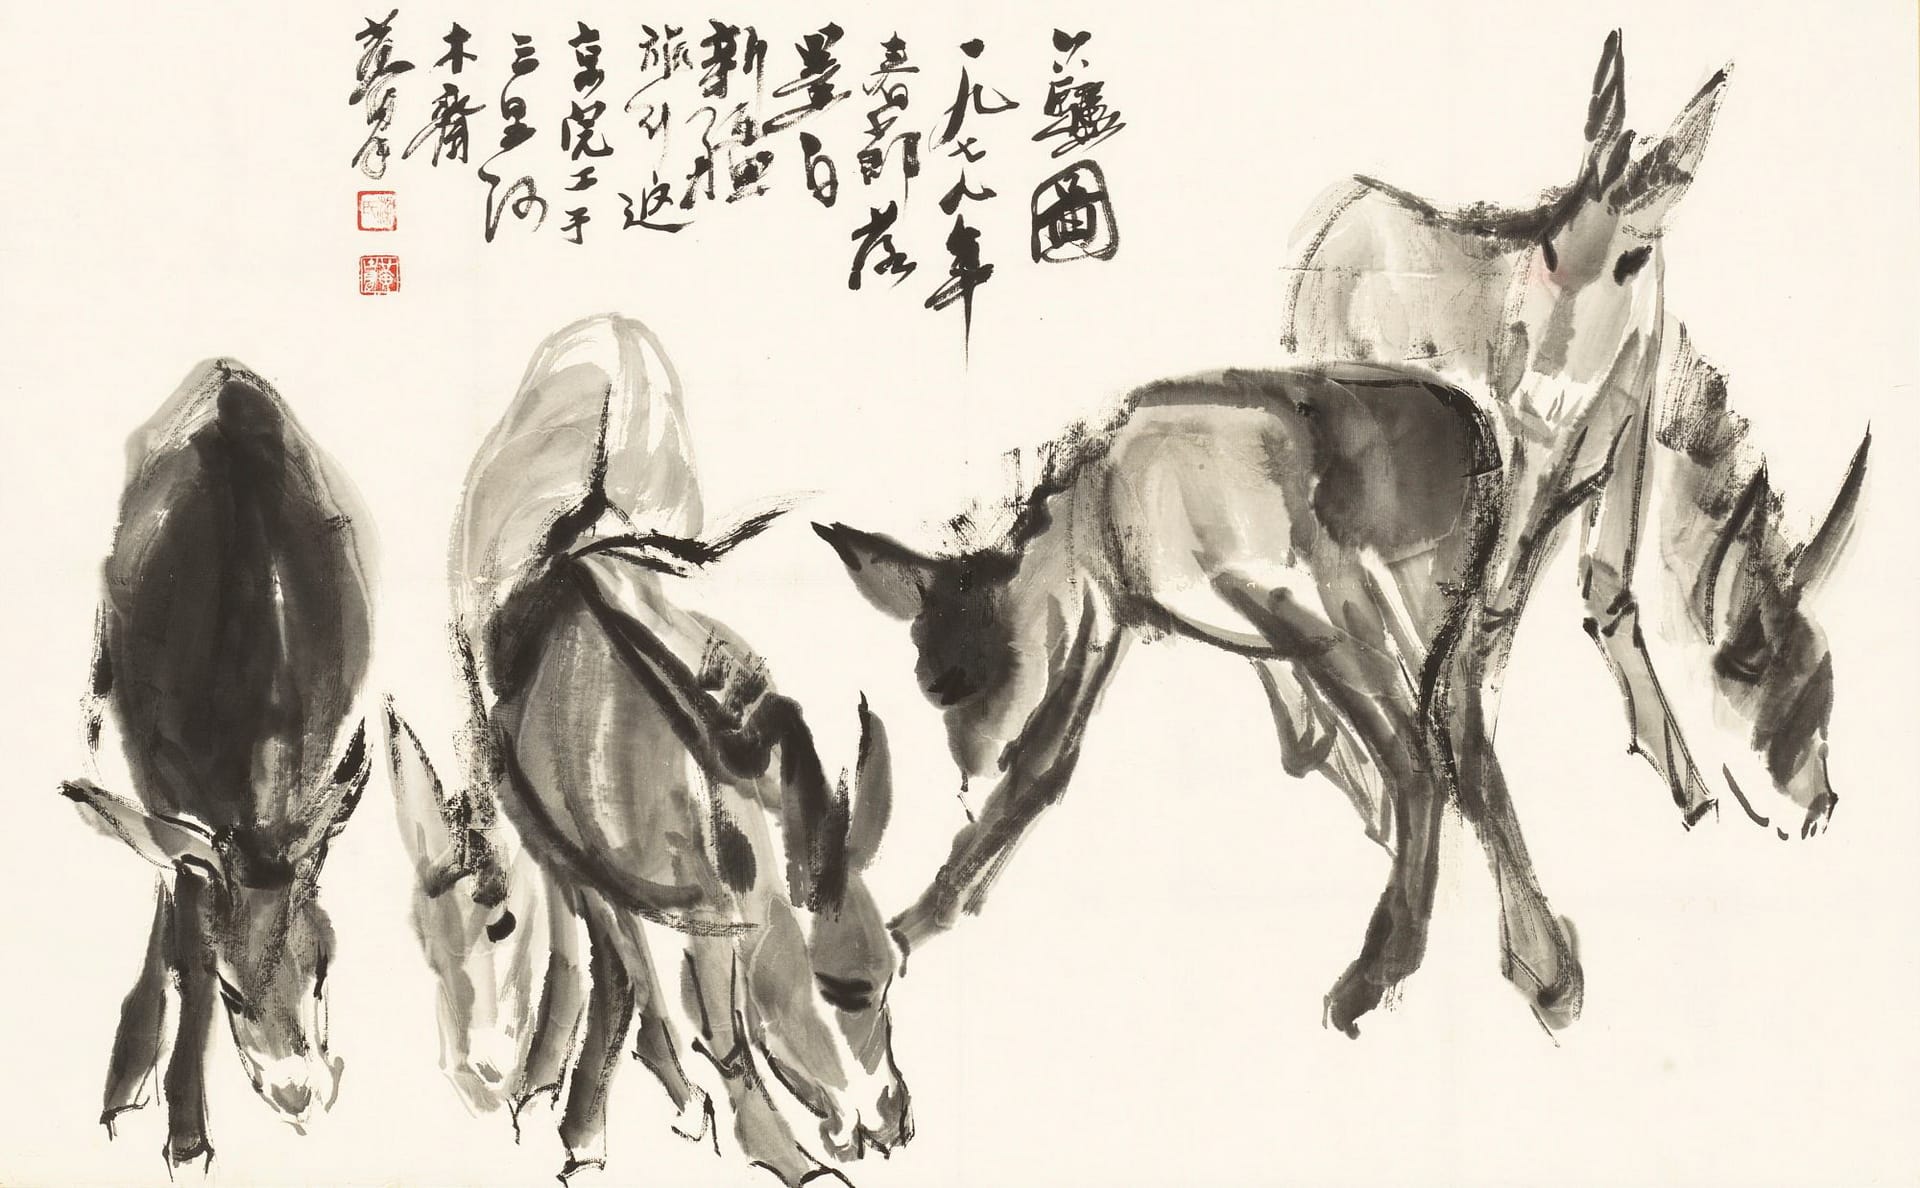 六驢圖
一九七九年
春節落
墨自
新疆
旅行返
京完工于
三里河
木齋
黃冑